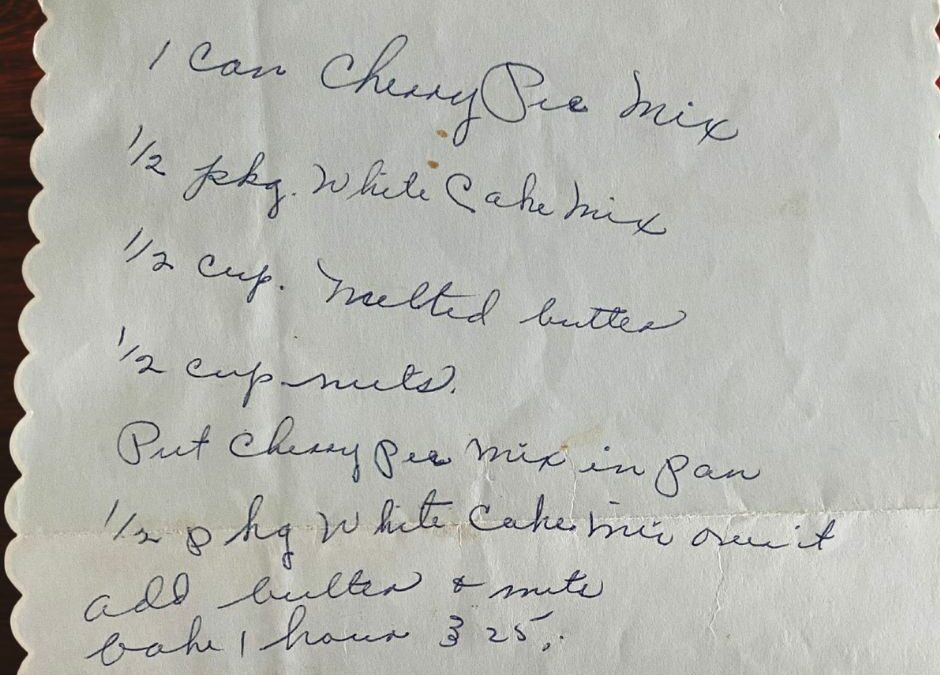 1 Can Cherry Pie Mix
1/2 pkg. White Cake Mix
1/2 cup. Melted butter
1/2 cup nuts.
Put Cherry Pie Mix in pan
1/2 pkg White Cake Mix over it
add butter & nuts
bake 1 hour 325.